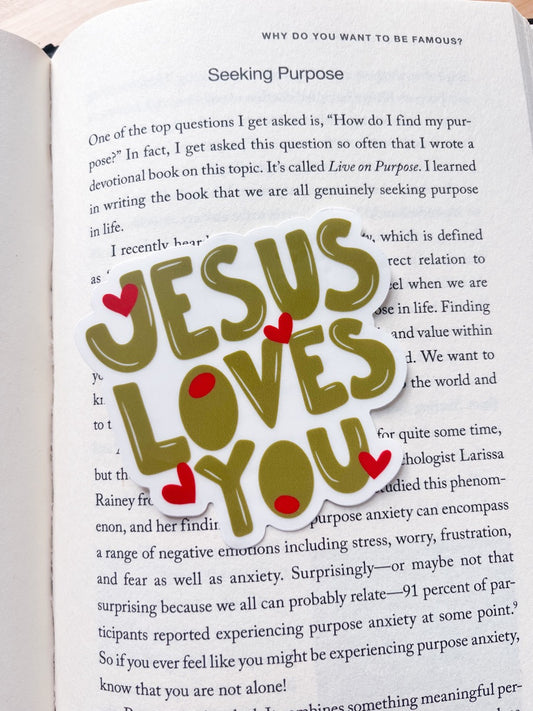 WHY DO YOU WANT TO BE FAMOUS?
Seeking Purpose
One of the top questions I get asked is, “How do I find my pur-
pose?” In fact, I get asked this question so often that I wrote a
devotional book on this topic. It’s called Live on Purpose. I learned
in writing the book that we are all genuinely seeking purpose
in life.
I recently hear which is defined
as rect relation to
when we are
in life. Finding
and value within
We want to
the world and
to
JESUS
LOVES
YOU
for quite some time,
but Larissa
Rainey studied this phenom-
enon, and her purpose anxiety can encompass
a range of negative emotions including stress, worry, frustration,
and fear as well as anxiety. Surprisingly—or maybe not that
surprising because we all can probably relate—91 percent of par-
ticipants reported experiencing purpose anxiety at some point.9
So if you ever feel like you might be experiencing purpose anxiety,
know that you are not alone!
something meaningful per-